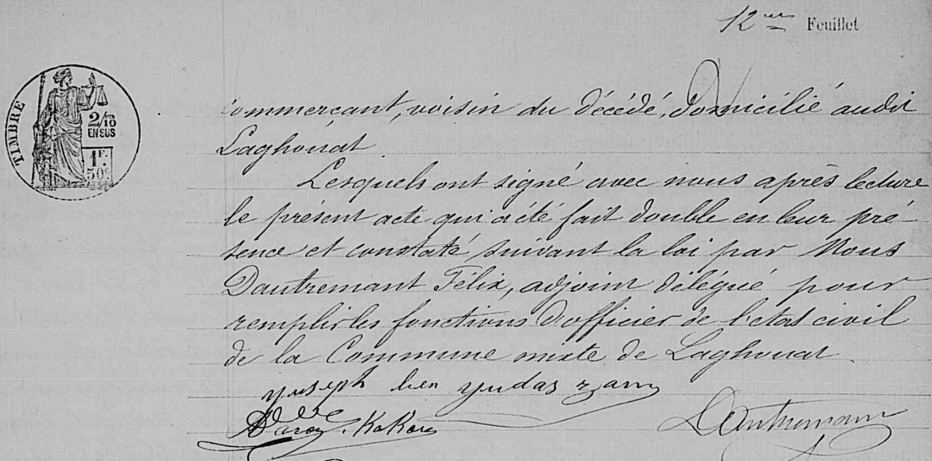 12me Feuillet
TIMBRE
2/10
EN SUS
1F.
50c
commerçant, voisin du décédé, domicilié audit
Laghouat.
Lesquels ont signé avec nous après lecture
le présent acte qui a été fait double en leur pré-
sence et constaté suivant la loi par Nous
Dautremant Félix, adjoint délégué pour
remplir les fonctions d'officier de l'etat civil
de la Commune mixte de Laghouat.
yuseph ben yudas
Dautremant